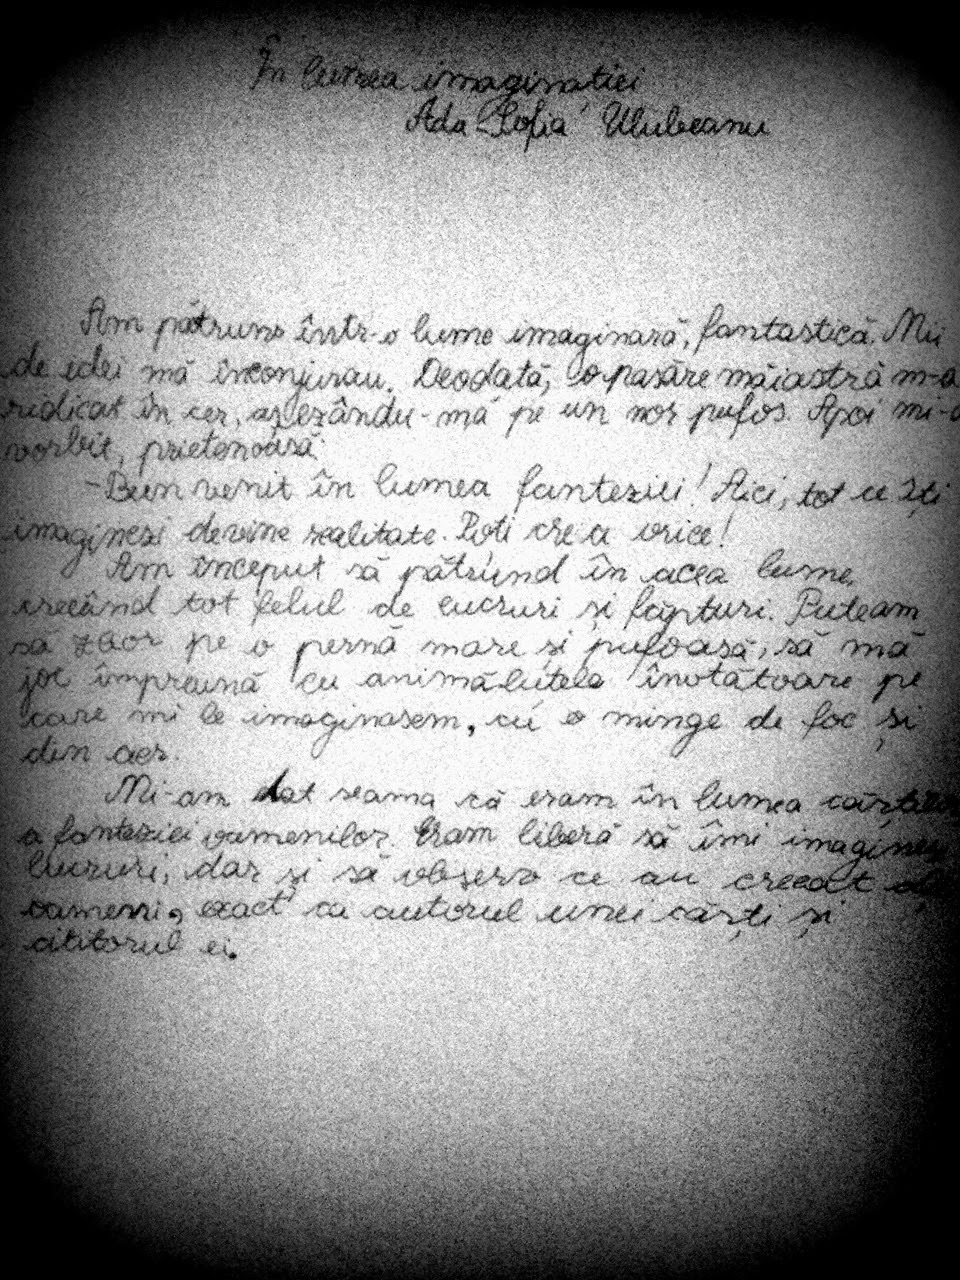 În lumea imaginatiei
Ada Sofia Ulubeanu
Am pătruns într-o lume imaginară, fantastică. Mii
de idei mă înconjurau. Deodată, o pasăre măiastră m-a
ridicat în cer, așezându-mă pe un nor pufos. Apoi mi-a
vorbit, prietenoasă:
-Bun venit în lumea fanteziei! Aici, tot ce îți
imaginezi devine realitate. Poti crea orice!
Am început să pătrund în acea lume,
creeând tot felul de lucruri și făpturi. Puteam
să zbor pe o pernă mare si pufoasă, să mă
joc împreună cu animăluțele înotătoare pe
care mi le imaginasem, cu o minge de foc și
din aer.
Mi-am dat seama că eram în lumea cărților
a fanteziei oamenilor. Eram liberă să îmi imaginez
lucruri, dar și să observ ce au creeat alți
oameni, exact ca autorul unei cărți și
cititorul ei.